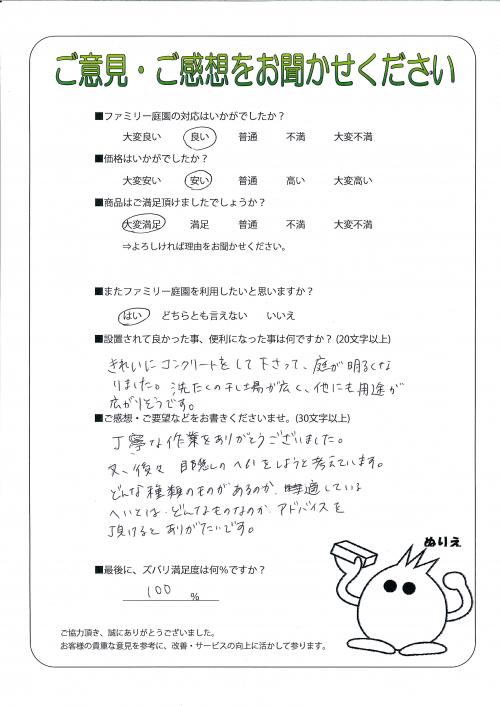 ご意見・ご感想をお聞かせください
■ファミリー庭園の対応はいかがでしたか？
大変良い 良い 普通 不満 大変不満
■価格はいかがでしたか？
大変安い 安い 普通 高い 大変高い
■商品はご満足頂けましたでしょうか？
大変満足 満足 普通 不満 大変不満
⇒よろしければ理由をお聞かせください。
■またファミリー庭園を利用したいと思いますか？
はい どちらとも言えない いいえ
■設置されて良かった事、便利になった事は何ですか？(20文字以上)
きれいにコンクリートをして下さって、庭が明るくな
りました。洗たくの干し場が広く、他にも用途が
広がりそうです。
■ご感想・ご要望などをお書きくださいませ。(30文字以上)
丁寧な作業をありがとうございました。
又、後々 目隠しのへいをしようと考えています。
どんな種類のものがあるのか、適している
へいとは、どんなものなのか、アドバイスを
頂けるとありがたいです。
ぬりえ
■最後に、ズバリ満足度は何％ですか？
100 ％
ご協力頂き、誠にありがとうございました。
お客様の貴重な意見を参考に、改善・サービスの向上に活かして参ります。